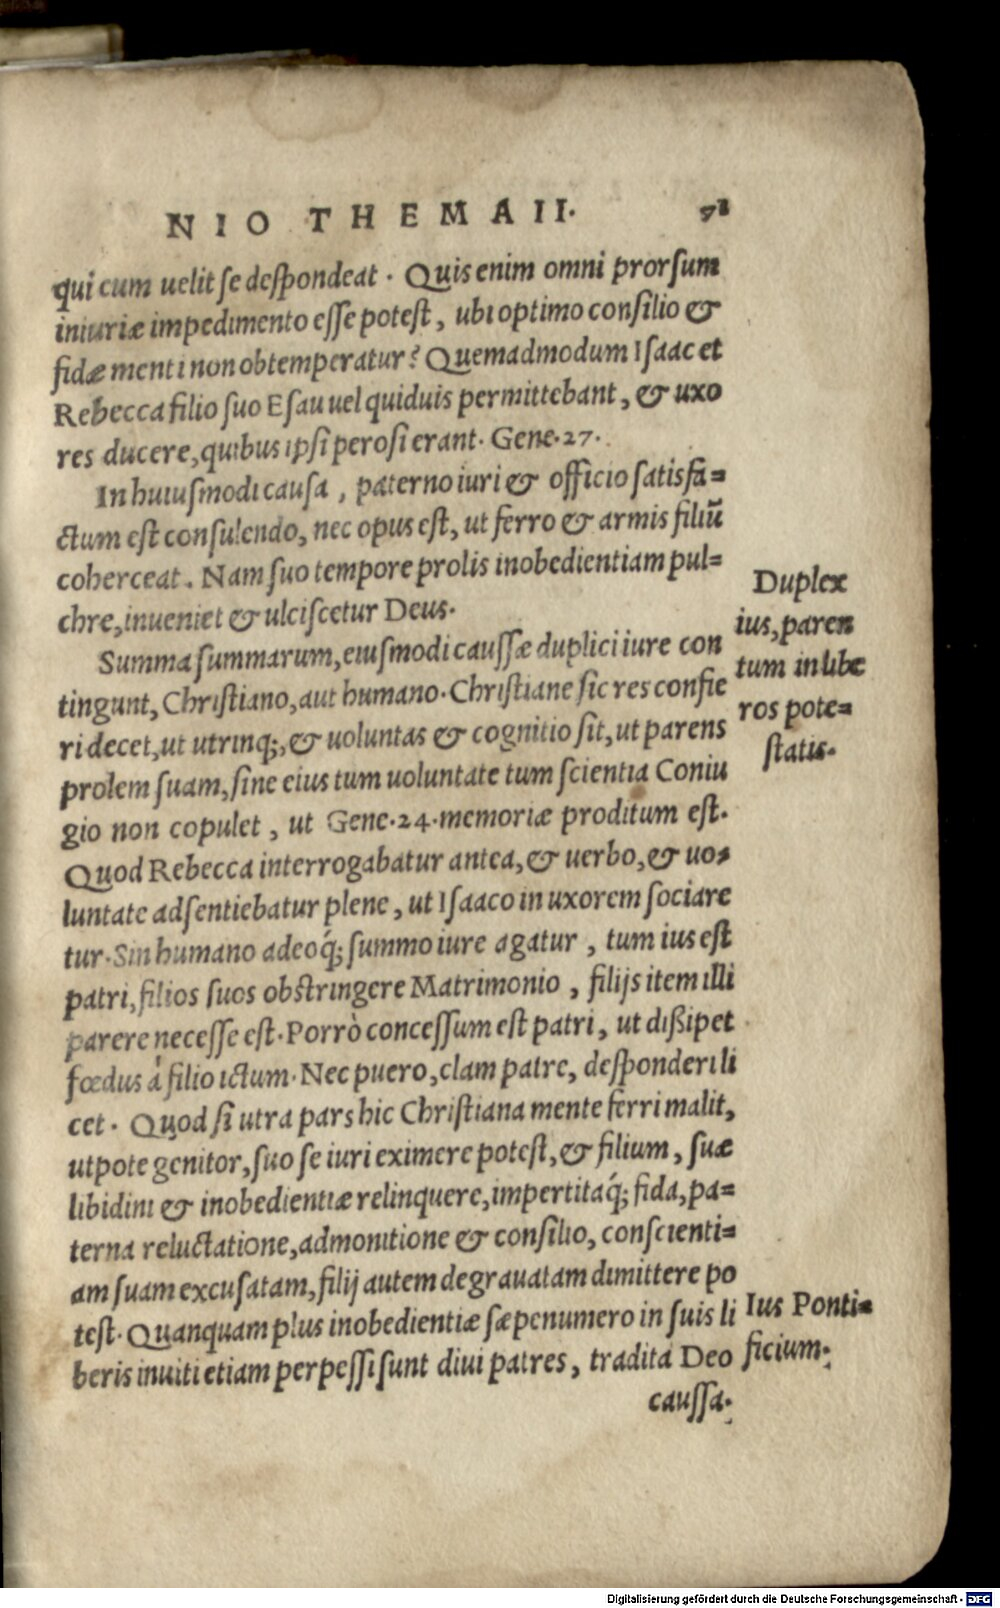 NIO THEMA II. 71
qui cum uelit se despondeat. Quis enim omni prorsum
iniuriæ impedimento esse potest, ubi optimo consilio &
fidæ menti non obtemperatur? Quemadmodum Isaac et
Rebecca filio suo Esau uel quiduis permittebant, & uxo
res ducere, quibus ipsi perosi erant. Gene.27.
In huiusmodi causa, paterno iuri & officio satisfa=
ctum est consulendo, nec opus est, ut ferro & armis filiũ
coherceat. Nam suo tempore prolis inobedientiam pul=
chre, inueniet & ulciscetur Deus.
Summa summarum, eiusmodi caussæ duplici iure con
tingunt, Christiano, aut humano. Christiane sic res confie
ri decet, ut utrinq;, & uoluntas & cognitio sit, ut parens
prolem suam, sine eius tum uoluntate tum scientia Coniu
gio non copulet, ut Gene.24.memoriæ proditum est.
Quod Rebecca interrogabatur antea, & uerbo, & uo=
luntate adsentiebatur plene, ut Isaaco in uxorem sociare
tur. Sin humano adeoq́; summo iure agatur, tum ius est
patri, filios suos obstringere Matrimonio, filijs item illi
parere necesse est. Porrò concessum est patri, ut dißipet
fœdus à filio ictum. Nec puero, clam patre, desponderi li
cet. Quod si utra pars hic Christiana mente ferri malit,
utpote genitor, suo se iuri eximere potest, & filium, suæ
libidini & inobedientiæ relinquere, impertitaq́; fida, pa=
terna reluctatione, admonitione & consilio, conscienti=
am suam excusatam, filij autem degrauatam dimittere po
test. Quanquam plus inobedientiæ sæpenumero in suis li
beris inuiti etiam perpessi sunt diui patres, tradita Deo
caussa.
Duplex
ius, paren
tum in libe
ros pote=
statis.
Ius Ponti=
ficium.
Digitalisierung gefördert durch die Deutsche Forschungsgemeinschaft - DFG